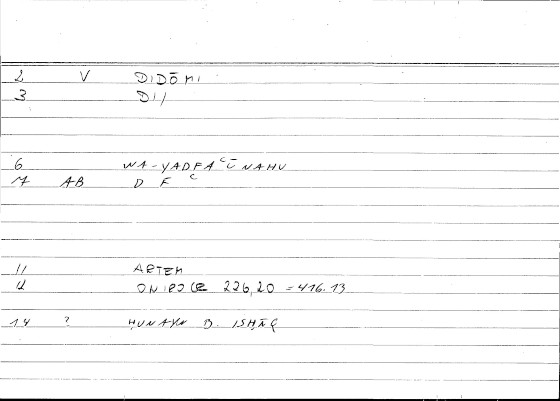 2 V DIDŌMI
3 DI/
6 WA-YADFAʿŪNAHU
7 AB D F ʿ
11 ARTEM
12 ONIROCR 226,20 = 416.13
14 ? ḤUNAYN B. ISḤĀQ